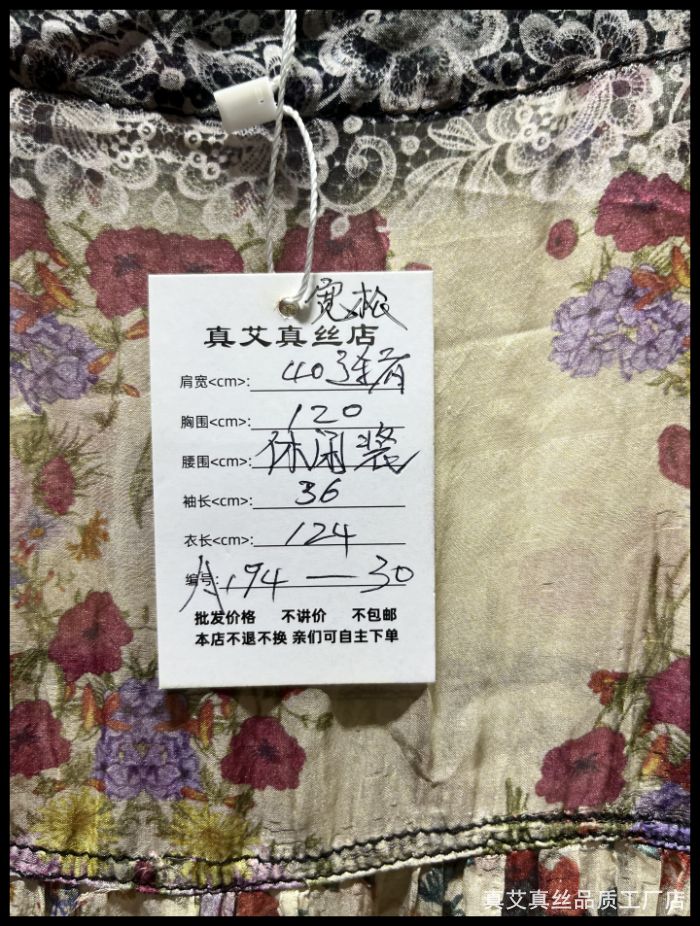 宽松
真艾真丝店
肩宽<cm>: 40连肩
胸围<cm>: 120
腰围<cm>: 休闲装
袖长<cm>: 36
衣长<cm>: 124
编号: A194—30
批发价格 不讲价 不包邮
本店不退不换 亲们可自主下单
真艾真丝品质工厂店